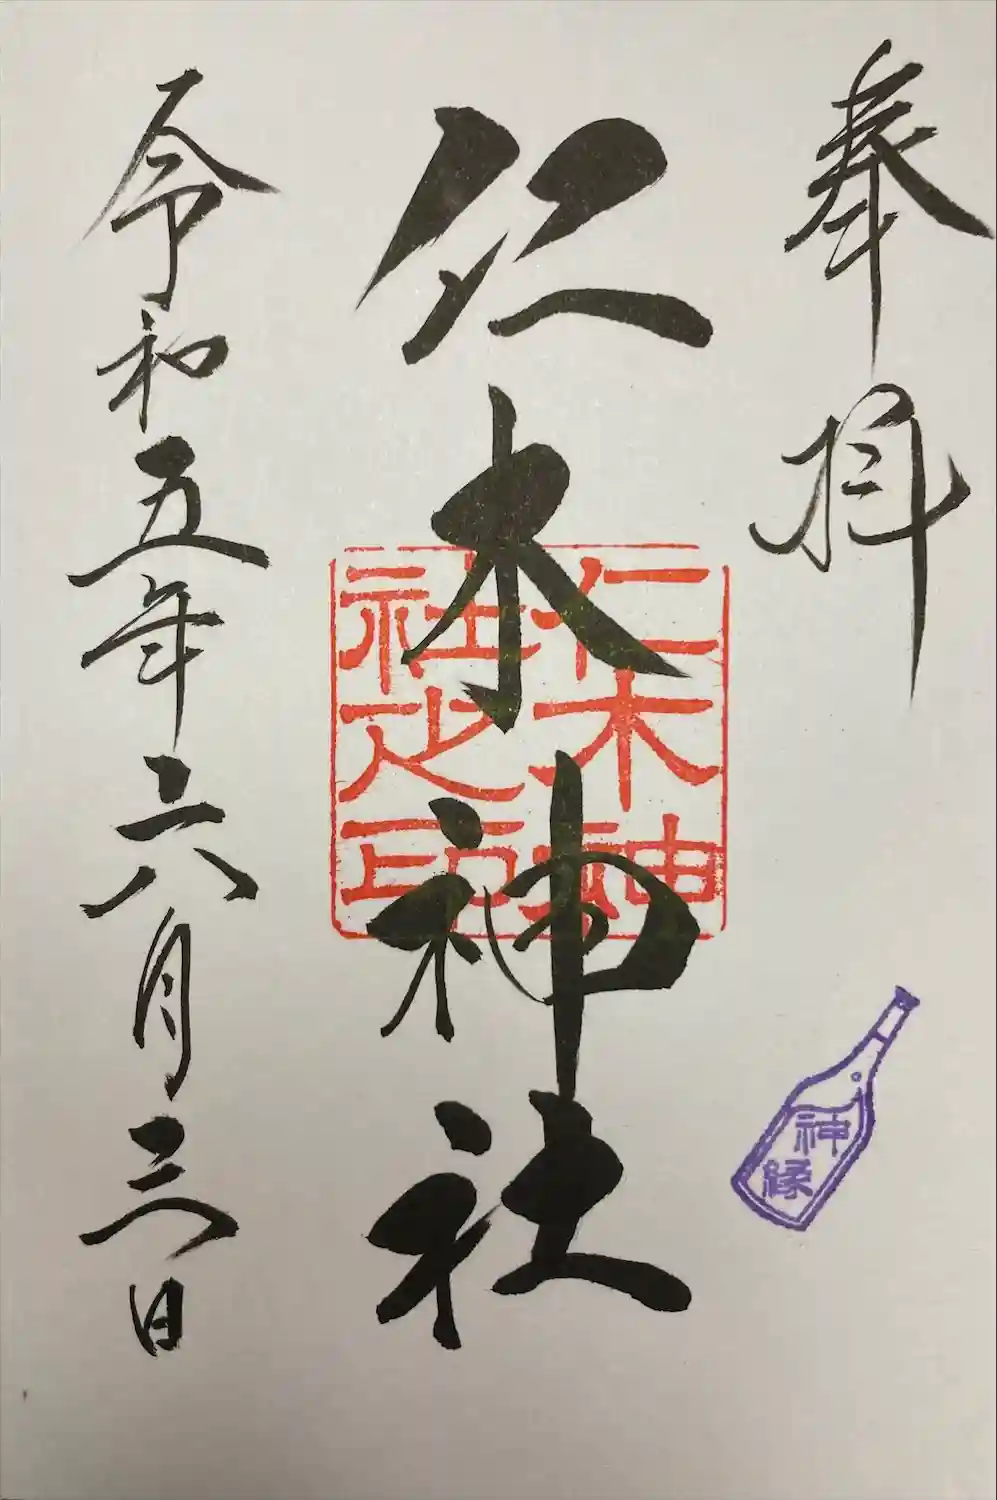 奉拝
神縁
仁木神社
仁木神社之印
令和五年六月三日